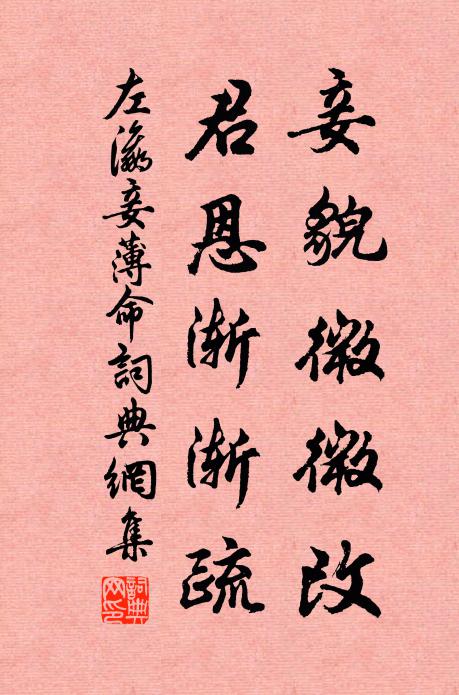 妾貌微微改
君恩渐渐疏
左瀛妾薄命詞典網集
詞典網印